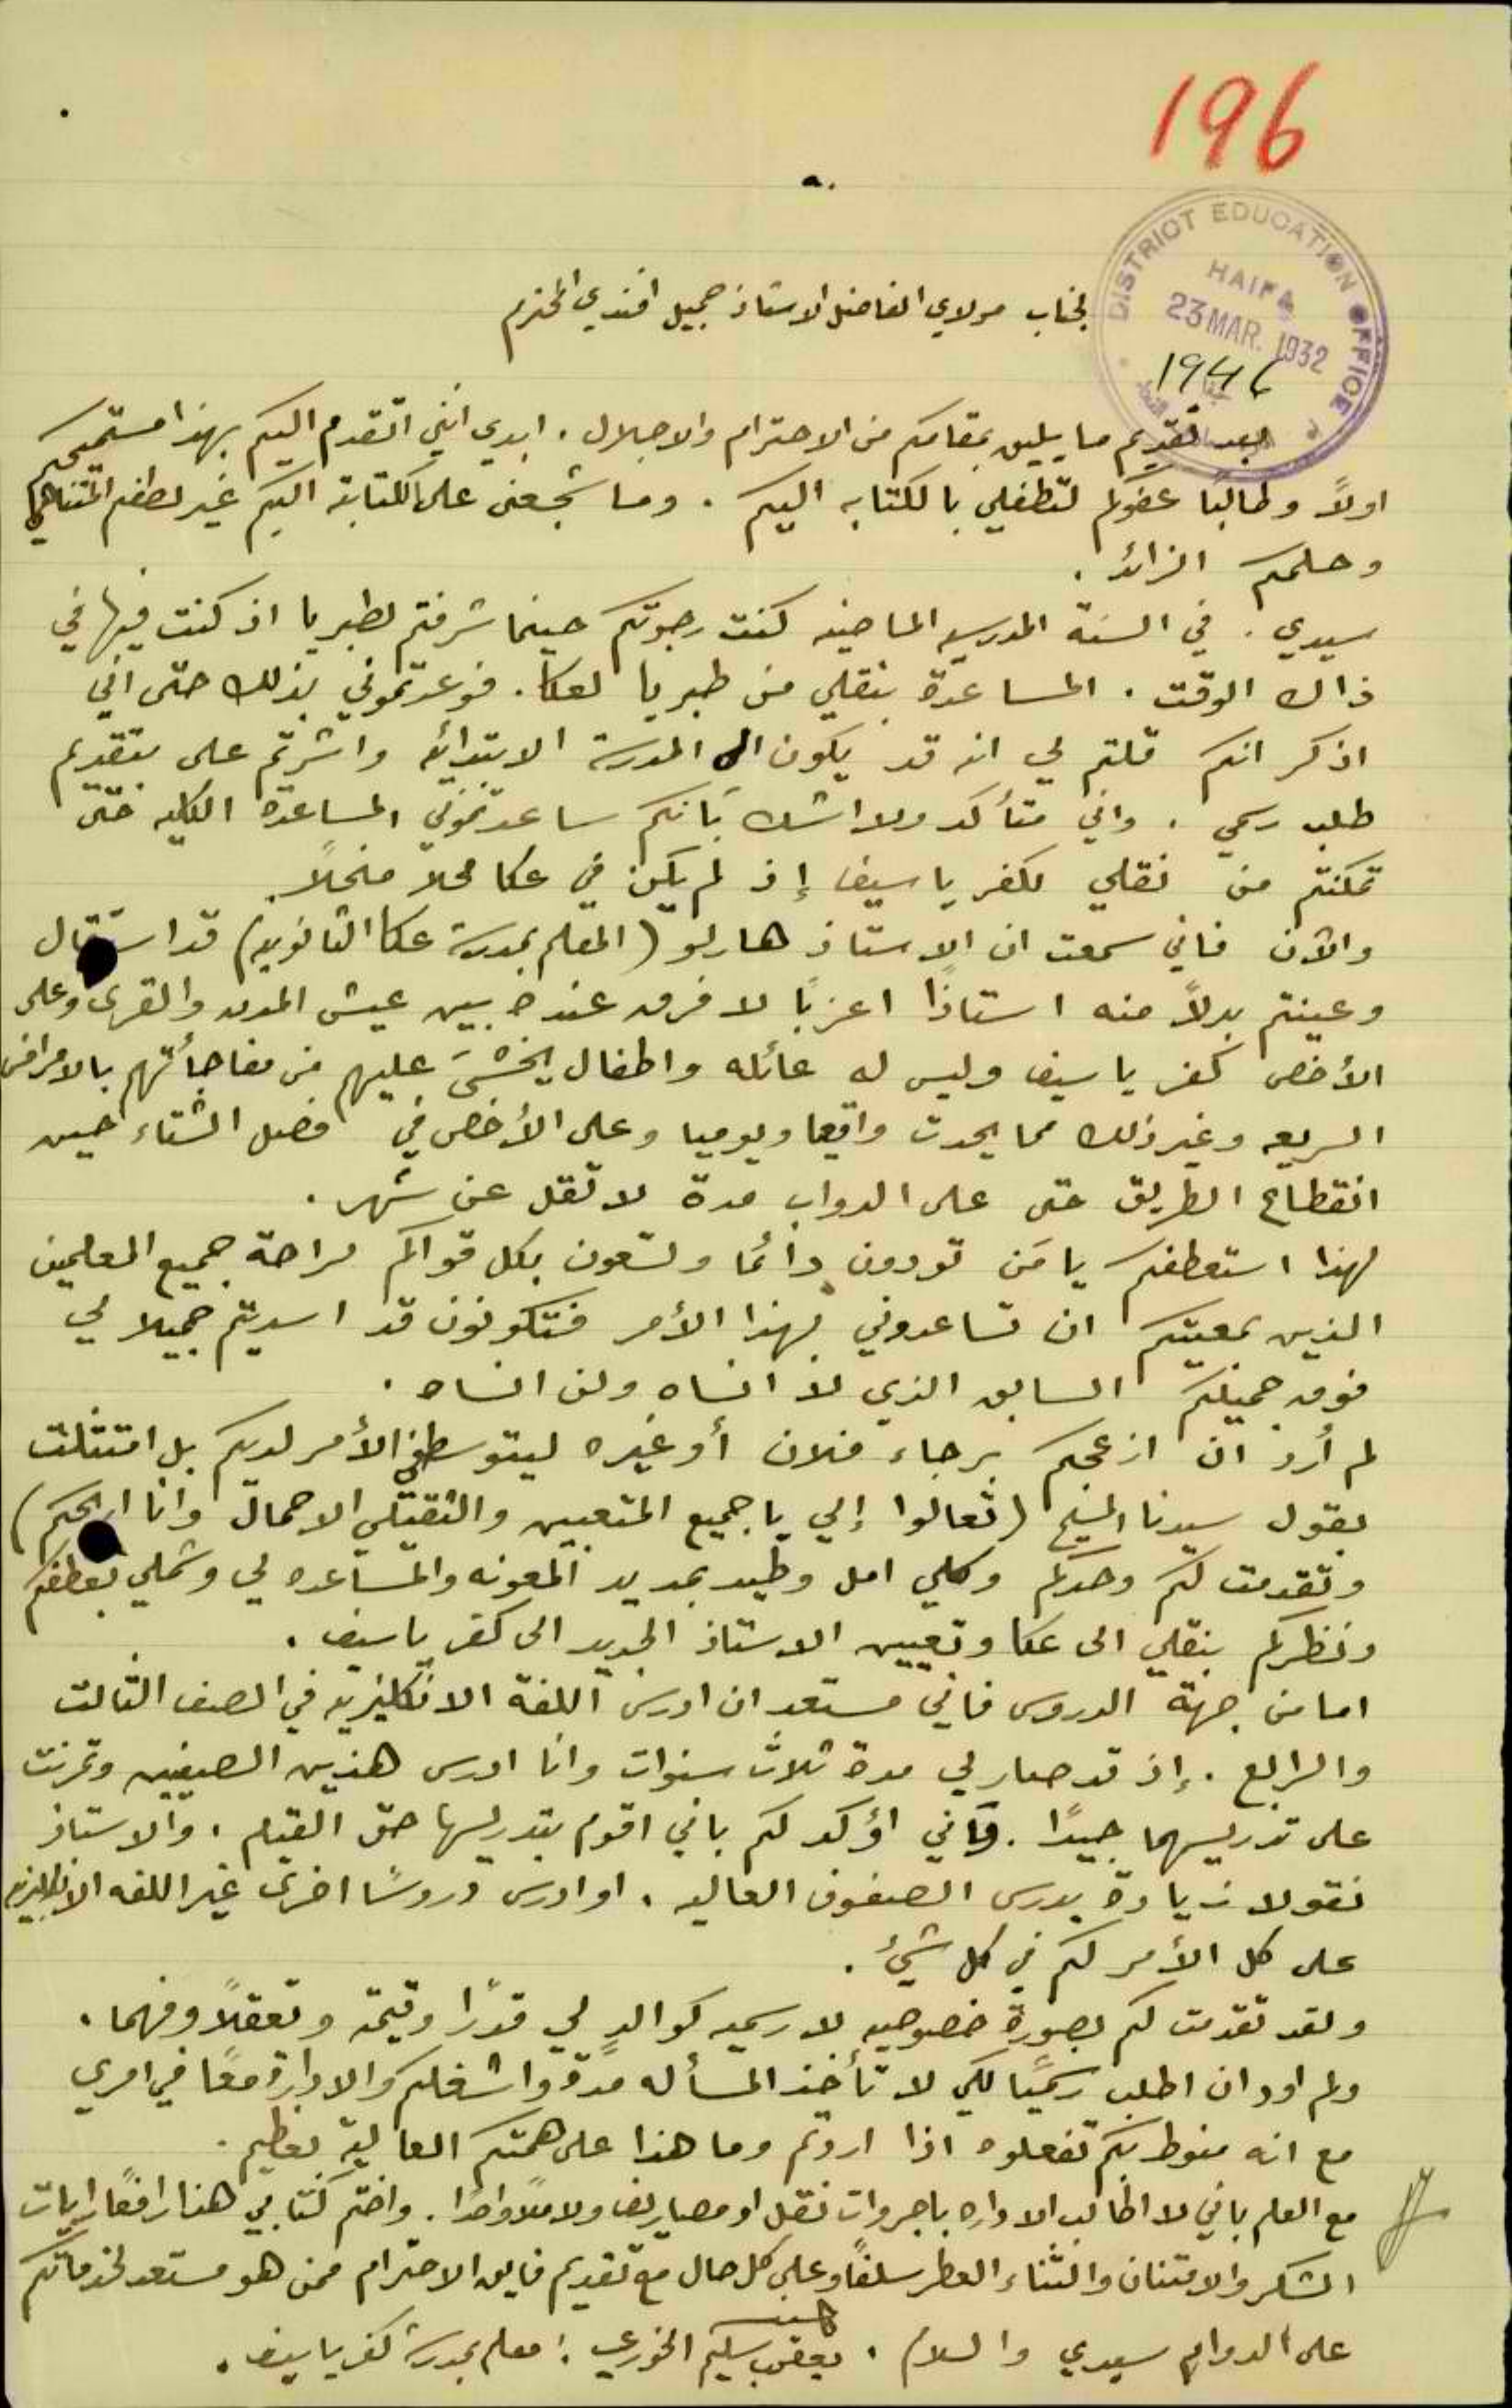 196
DISTRICT EDUCATION OFFICE
HAIFA
23 MAR. 1932
لجناب مولاي الفاضل الاستاذ جميل افندي المحترم
بعد تقديم ما يليق بمقامكم من الاحترام والاجلال. ابدي انني اتقدم اليكم بهذا مستميحكم
اولاً وطالبًا عفوكم لتطفلي بالكتابه اليكم. وما شجعني على الكتابة اليكم غير لطفكم المتناهي
وحلمكم الزائد.
سيدي. في السنة المدرسيه الماضيه كنت رجوتكم حينما شرفتم لطبريا اذ كنت فيها في
ذاك الوقت. المساعدة بنقلي من طبريا لعكا. فوعدتموني بذلك حتى اني
اذكر انكم قلتم لي انه قد يكون الى المدرسة الابتدائيه واشرتم علي بتقديم
طلب رسمي. واني متأكد ولا اشك بانكم ساعدتموني المساعدة الكليه حتى
تمكنتم من نقلي لكفر ياسيف إذ لم يكن في عكا محلاً منحلاً.
والآن فاني سمعت ان الاستاذ هارلو (المعلم بمدرسة عكا الثانويه) قد استقال
وعينتم بدلاً منه استاذًا اعزبًا لا فرق عنده بين عيش المدن والقرى وعلى
الأخص كفر ياسيف وليس له عائله واطفال يخشى عليهم من مفاجأتهم بالامراض
السريعه وغير ذلك مما يحدث واقعيا ويوميا وعلى الأخص في فصل الشتاء حين
انقطاع الطريق حتى على الدواب مدة لا تقل عن شهر.
لهذا استعطفكم يا مَن تودون دائمًا وتسعون بكل قواكم لراحة جميع المعلمين
الذين بمعيتكم ان تساعدوني بهذا الأمر فتكونون قد اسديتم جميلا لي
فوق جميلكم السابق الذي لا انساه ولن انساه.
لم أرد ان ازعجكم برجاء فلان أو غيره ليتوسط في الأمر لديكم بل امتثلت
بقول سيدنا المسيح (تعالوا إلي يا جميع المتعبين والثقيلي الاحمال وانا اريحكم)
وتقدمت لكم وحدكم وكلي امل وطيد بمد يد المعونه والمساعده لي وشملي بعطفكم
ونظركم بنقلي الى عكا وتعيين الاستاذ الجديد الى كفر ياسيف.
اما من جهة الدروس فاني مستعد ان ادرس اللغة الانكليزيه في الصف الثالث
والرابع. إذ قد صار لي مدة ثلاث سنوات وانا ادرس هذين الصفين وتمرنت
على تدريسهما جيدًا. فاني اؤكد لكم باني اقوم بتدريسها حق القيام. والاستاذ
نقولا زيادة يدرس الصفوف العاليه. او ادرس دروسًا اخرى غير اللغه الانكليزيه
على كل الأمر لكم في كل شيء.
ولقد تقدمت لكم بصورة خصوصيه لا رسميه كوالدٍ لي قدرًا وقيمة وتعقلاً وفهما.
ولم اود ان اطلب رسميًا لكي لا تأخذ المسأله مدة واشغلكم والادارة معًا في امري
مع انه منوط بكم تفعلوه اذا اردتم وما هذا على همتكم العالية بعظيم.
مع العلم باني لا اطالب الاداره باجروات نقل او مصاريف ولا ملاً واحدًا. واختم كتابي هذا رافعًا رايات
الشكر والامتنان والثناء العطر سلفًا وعلى كل حال مع تقديم فايق الاحترام ممن هو مستعد لخدماتكم
على الدوام سيدي والسلام. يعقوب سليم الخوري: معلم بمدرسة كفر ياسيف.